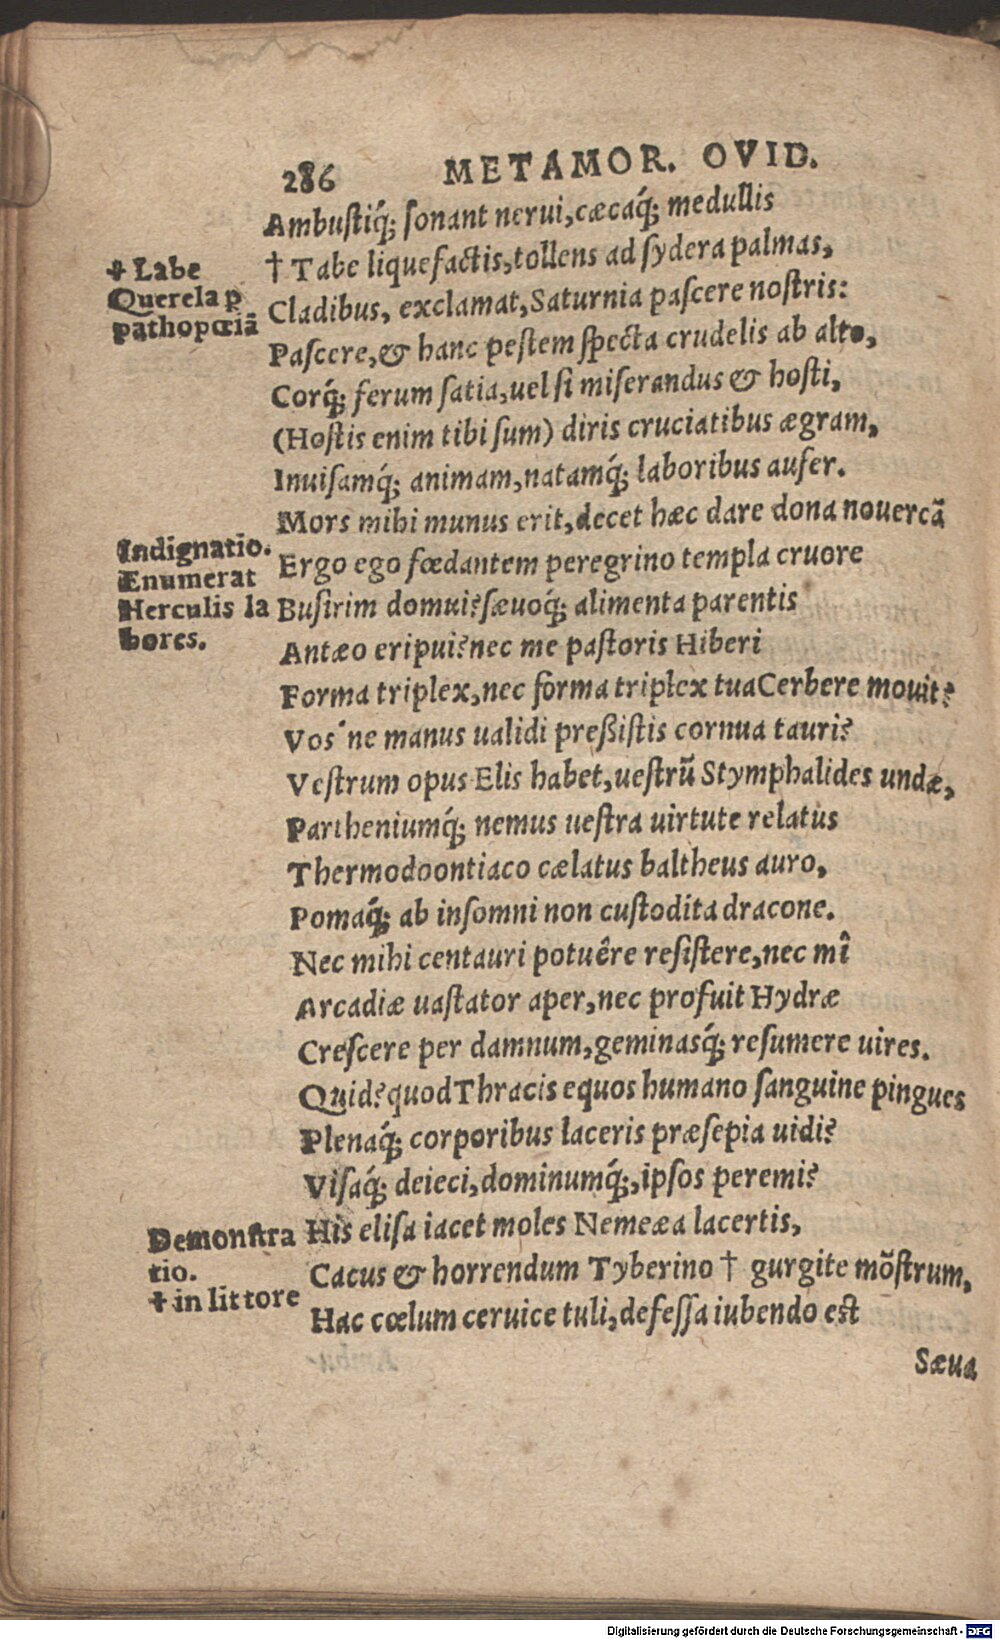 286 METAMOR. OVID.
Ambustiq́; ſonant nerui,cæcaq́; medullis
† Tabe liquefactis,tollens ad ſydera palmas,
Cladibus, exclamat,Saturnia paſcere noſtris:
Paſcere,& hanc peſtem ſpecta crudelis ab alto,
Corq́; ferum ſatia,uel ſi miſerandus & hoſti,
(Hoſtis enim tibi ſum) diris cruciatibus ægram,
Inuiſamq́; animam,natamq́; laboribus aufer.
Mors mihi munus erit,decet hæc dare dona nouercã
Ergo ego fœdantem peregrino templa cruore
Buſirim domui?ſæuoq́; alimenta parentis
Antæo eripui?nec me paſtoris Hiberi
Forma triplex,nec forma triplex tua Cerbere mouit?
Vos'ne manus ualidi preßiſtis cornua tauri?
Veſtrum opus Elis habet,ueſtrũ Stymphalides undæ,
Partheniumq́; nemus ueſtra uirtute relatus
Thermodoontiaco cælatus baltheus auro,
Pomaq́; ab inſomni non cuſtodita dracone.
Nec mihi centauri potuêre reſiſtere,nec mî
Arcadiæ uaſtator aper,nec profuit Hydræ
Creſcere per damnum,geminasq́; reſumere uires.
Quid?quod Thracis equos humano ſanguine pingues
Plenaq́; corporibus laceris præſepia uidi?
Viſaq́; deieci,dominumq́;,ipſos peremi?
His eliſa iacet moles Nemeæa lacertis,
Cacus & horrendum Tyberino † gurgite mõſtrum,
Hac cœlum ceruice tuli,defeſſa iubendo eſt
Sæua
† Labe
Querela p̱
pathopœiã
Indignatio.
Enumerat
Herculis la
bores.
Demonſtra
tio.
† in littore
Digitalisierung gefördert durch die Deutsche Forschungsgemeinschaft - DFG